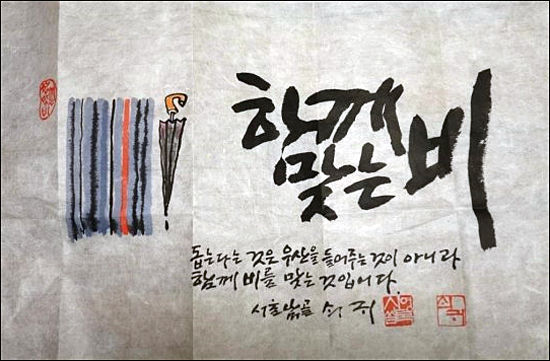 함께
맞는 비
돕는다는 것은 우산을 들어주는 것이 아니라
함께 비를 맞는 것입니다.